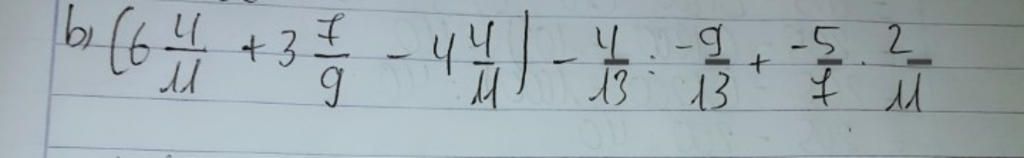 b, (6 4/11 + 3 7/9 - 4 4/11) - 4/13 : -9/13 + -5/7 . 2/11